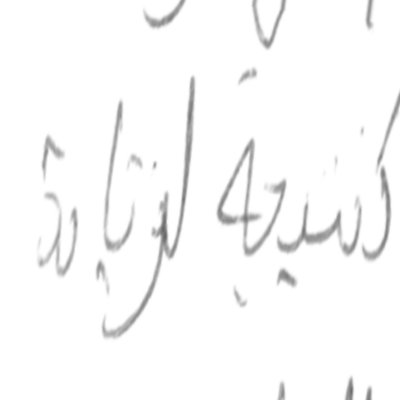 كنتيجة لزيادة